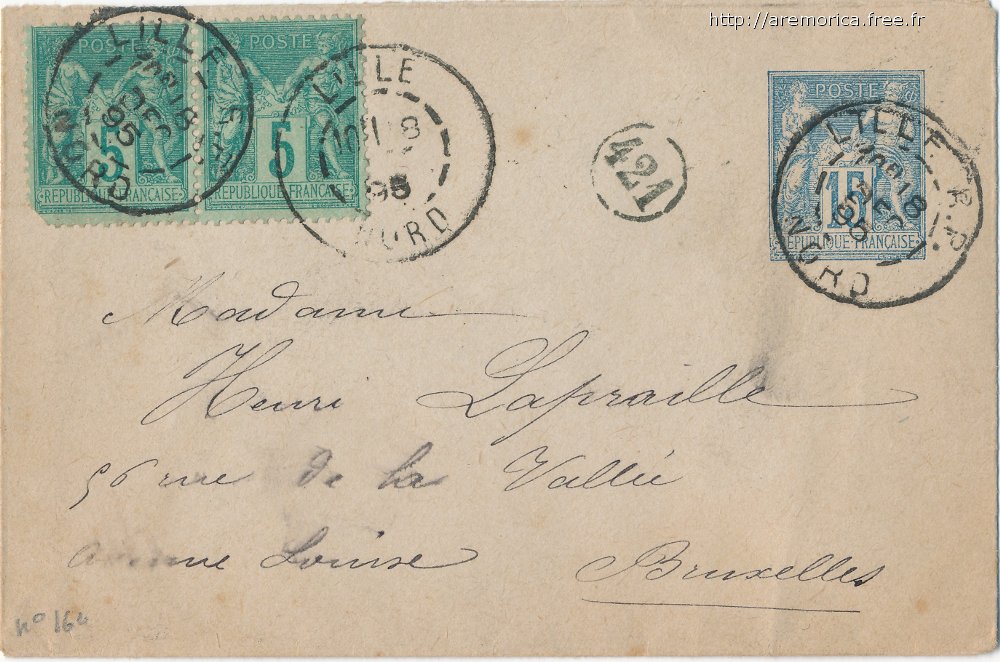 http://aremorica.free.fr
POSTE POSTE
5 5
REPUBLIQUE FRANÇAISE REPUBLIQUE FRANÇAISE
LILLE R.P.
DEC
95
NORD
LILLE
95
NORD
421
POSTE
15
REPUBLIQUE FRANÇAISE
LILLE R.P.
DEC
95
NORD
Madame
Henri Lapraille
56 rue de la Vallée
avenue Louise Bruxelles